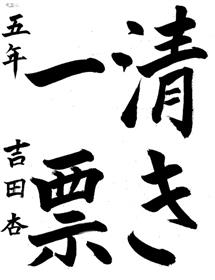 清き
一票
五年 吉田杏